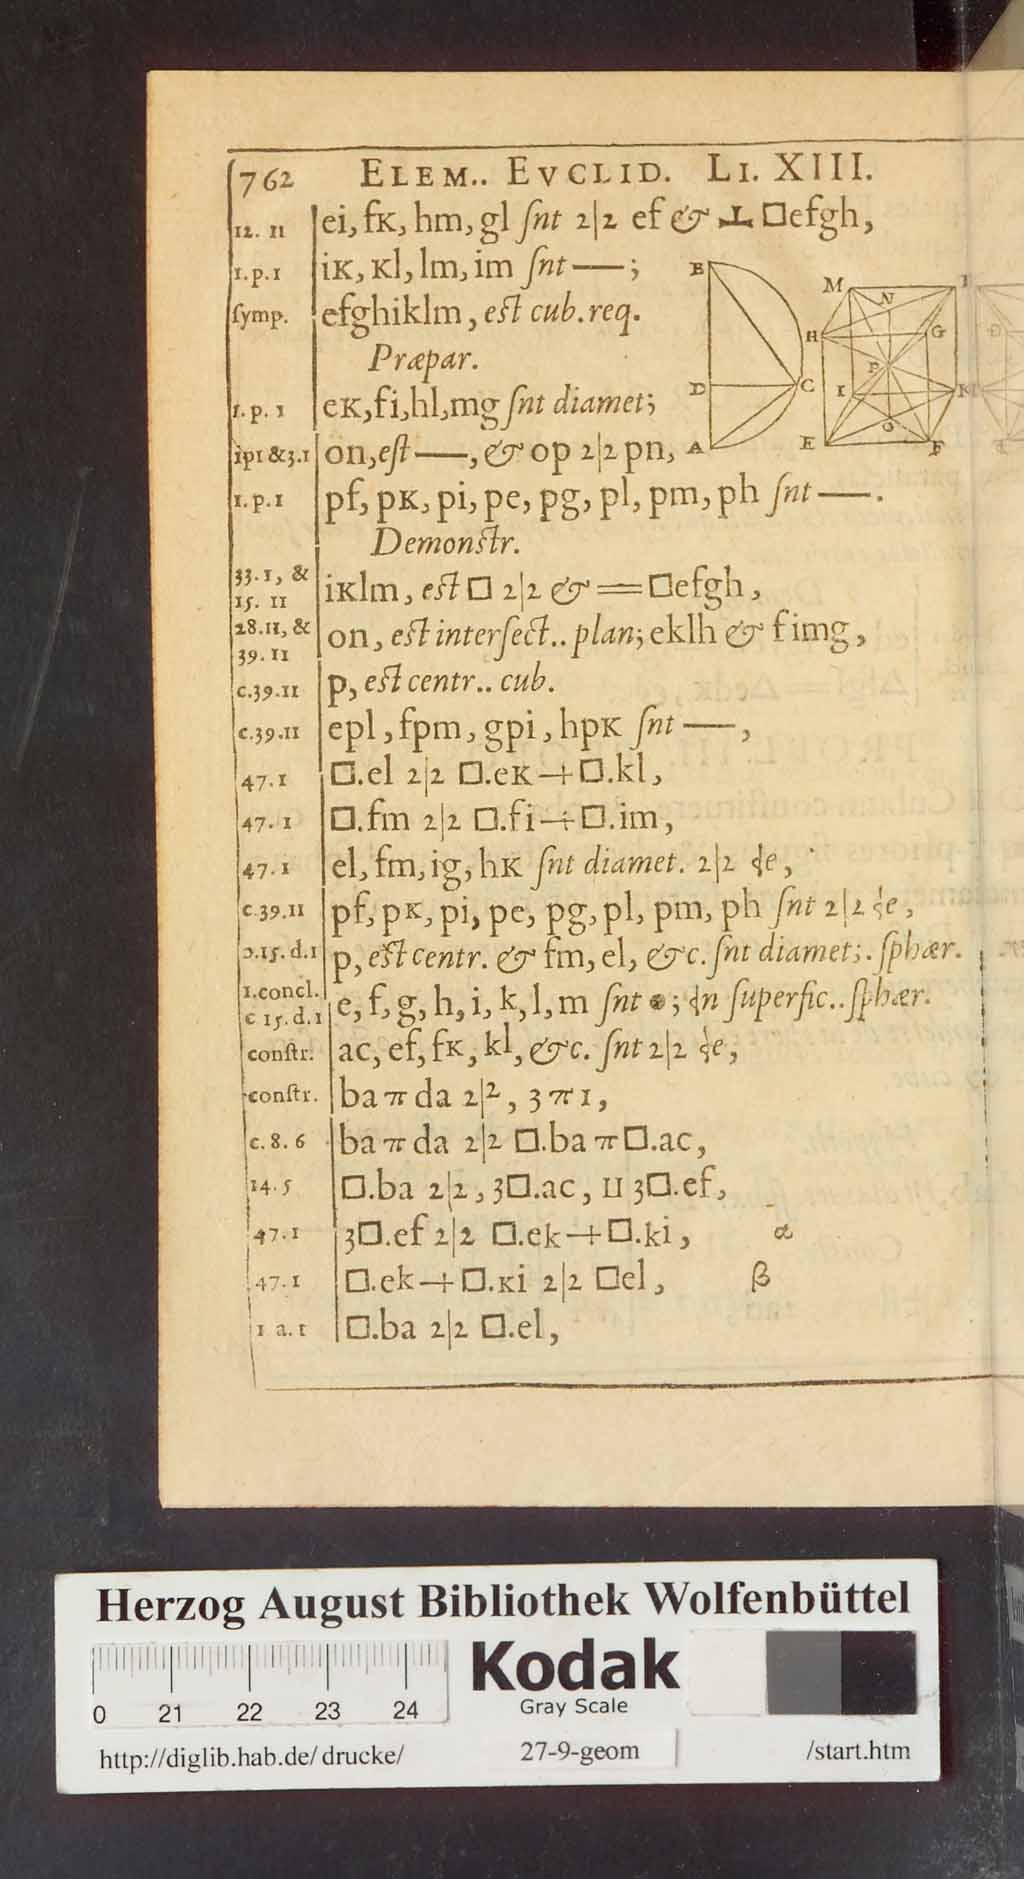 762 ELEM.. EVCLID. LI. XIII.
12. 11 ei, fK, hm, gl ſnt 2|2 ef & ⊥ □efgh,
1. p. 1 iK, Kl, lm, im ſnt —— ;
ſymp. efghiklm, eſt cub. req.
Præpar.
1. p. 1 eK, fi, hl, mg ſnt diamet;
1p1 & 3.1 on, eſt ——, & op 2|2 pn,
1. p. 1 pf, pK, pi, pe, pg, pl, pm, ph ſnt ——.
Demonſtr.
33. 1, &
15. 11 iKlm, eſt □ 2|2 & == □efgh,
28.11, &
39. 11 on, eſt interſect.. plan; eklh & fimg,
c.39.11 p, eſt centr.. cub.
c.39.11 epl, fpm, gpi, hpK ſnt ——,
47. 1 □.el 2|2 □.eK + □.kl,
47. 1 □.fm 2|2 □.fi + □.im,
47. 1 el, fm, ig, hK ſnt diamet. 2|2 e,
c.39.11 pf, pK, pi, pe, pg, pl, pm, ph ſnt 2|2 e,
15. d.1 p, eſt centr. & fm, el, &c. ſnt diamet;. ſphær.
1.concl.
c 15. d.1 e, f, g, h, i, k, l, m ſnt ; n ſuperfic.. ſphær.
conſtr. ac, ef, fK, kl, &c. ſnt 2|2 e,
conſtr. ba π da 2|2, 3 π 1,
c. 8. 6 ba π da 2|2 □.ba π □.ac,
14. 5 □.ba 2|2, 3□.ac, II 3□.ef,
47. 1 3□.ef 2|2 □.ek + □.ki, α
47. 1 □.ek + □.Ki 2|2 □el, β
1 a. 1 □.ba 2|2 □.el,
B
D
A
C
M
N
I
H
G
P
I
K
O
E
F
Herzog August Bibliothek Wolfenbüttel
Kodak
Gray Scale
0 21 22 23 24
http://diglib.hab.de/drucke/ 27-9-geom /start.htm